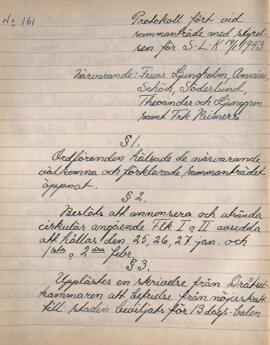 No 161
Protokoll fört vid
sammanträde med styrel-
sen för S.L.K 1943
Närvarande: Fruar Ljungholm,
Schök, Söderlund,
Theander och Ljunggren
samt Frk Reimers
§ 1.
Ordföranden hälsade de närvarande
välkomna och förklarade sammanträdet
öppnat.
§ 2.
Beslöts att annonsera och utsända
cirkulär angående Ftk I o II avsedda
att hållas den 25, 26, 27 jan. och
1sta o 2dra febr.
§ 3.
Upplästes en skrivelse från Drätsel-
kammaren att befrielse från nöjesskatt
till staden beviljats för 13 dags-balen